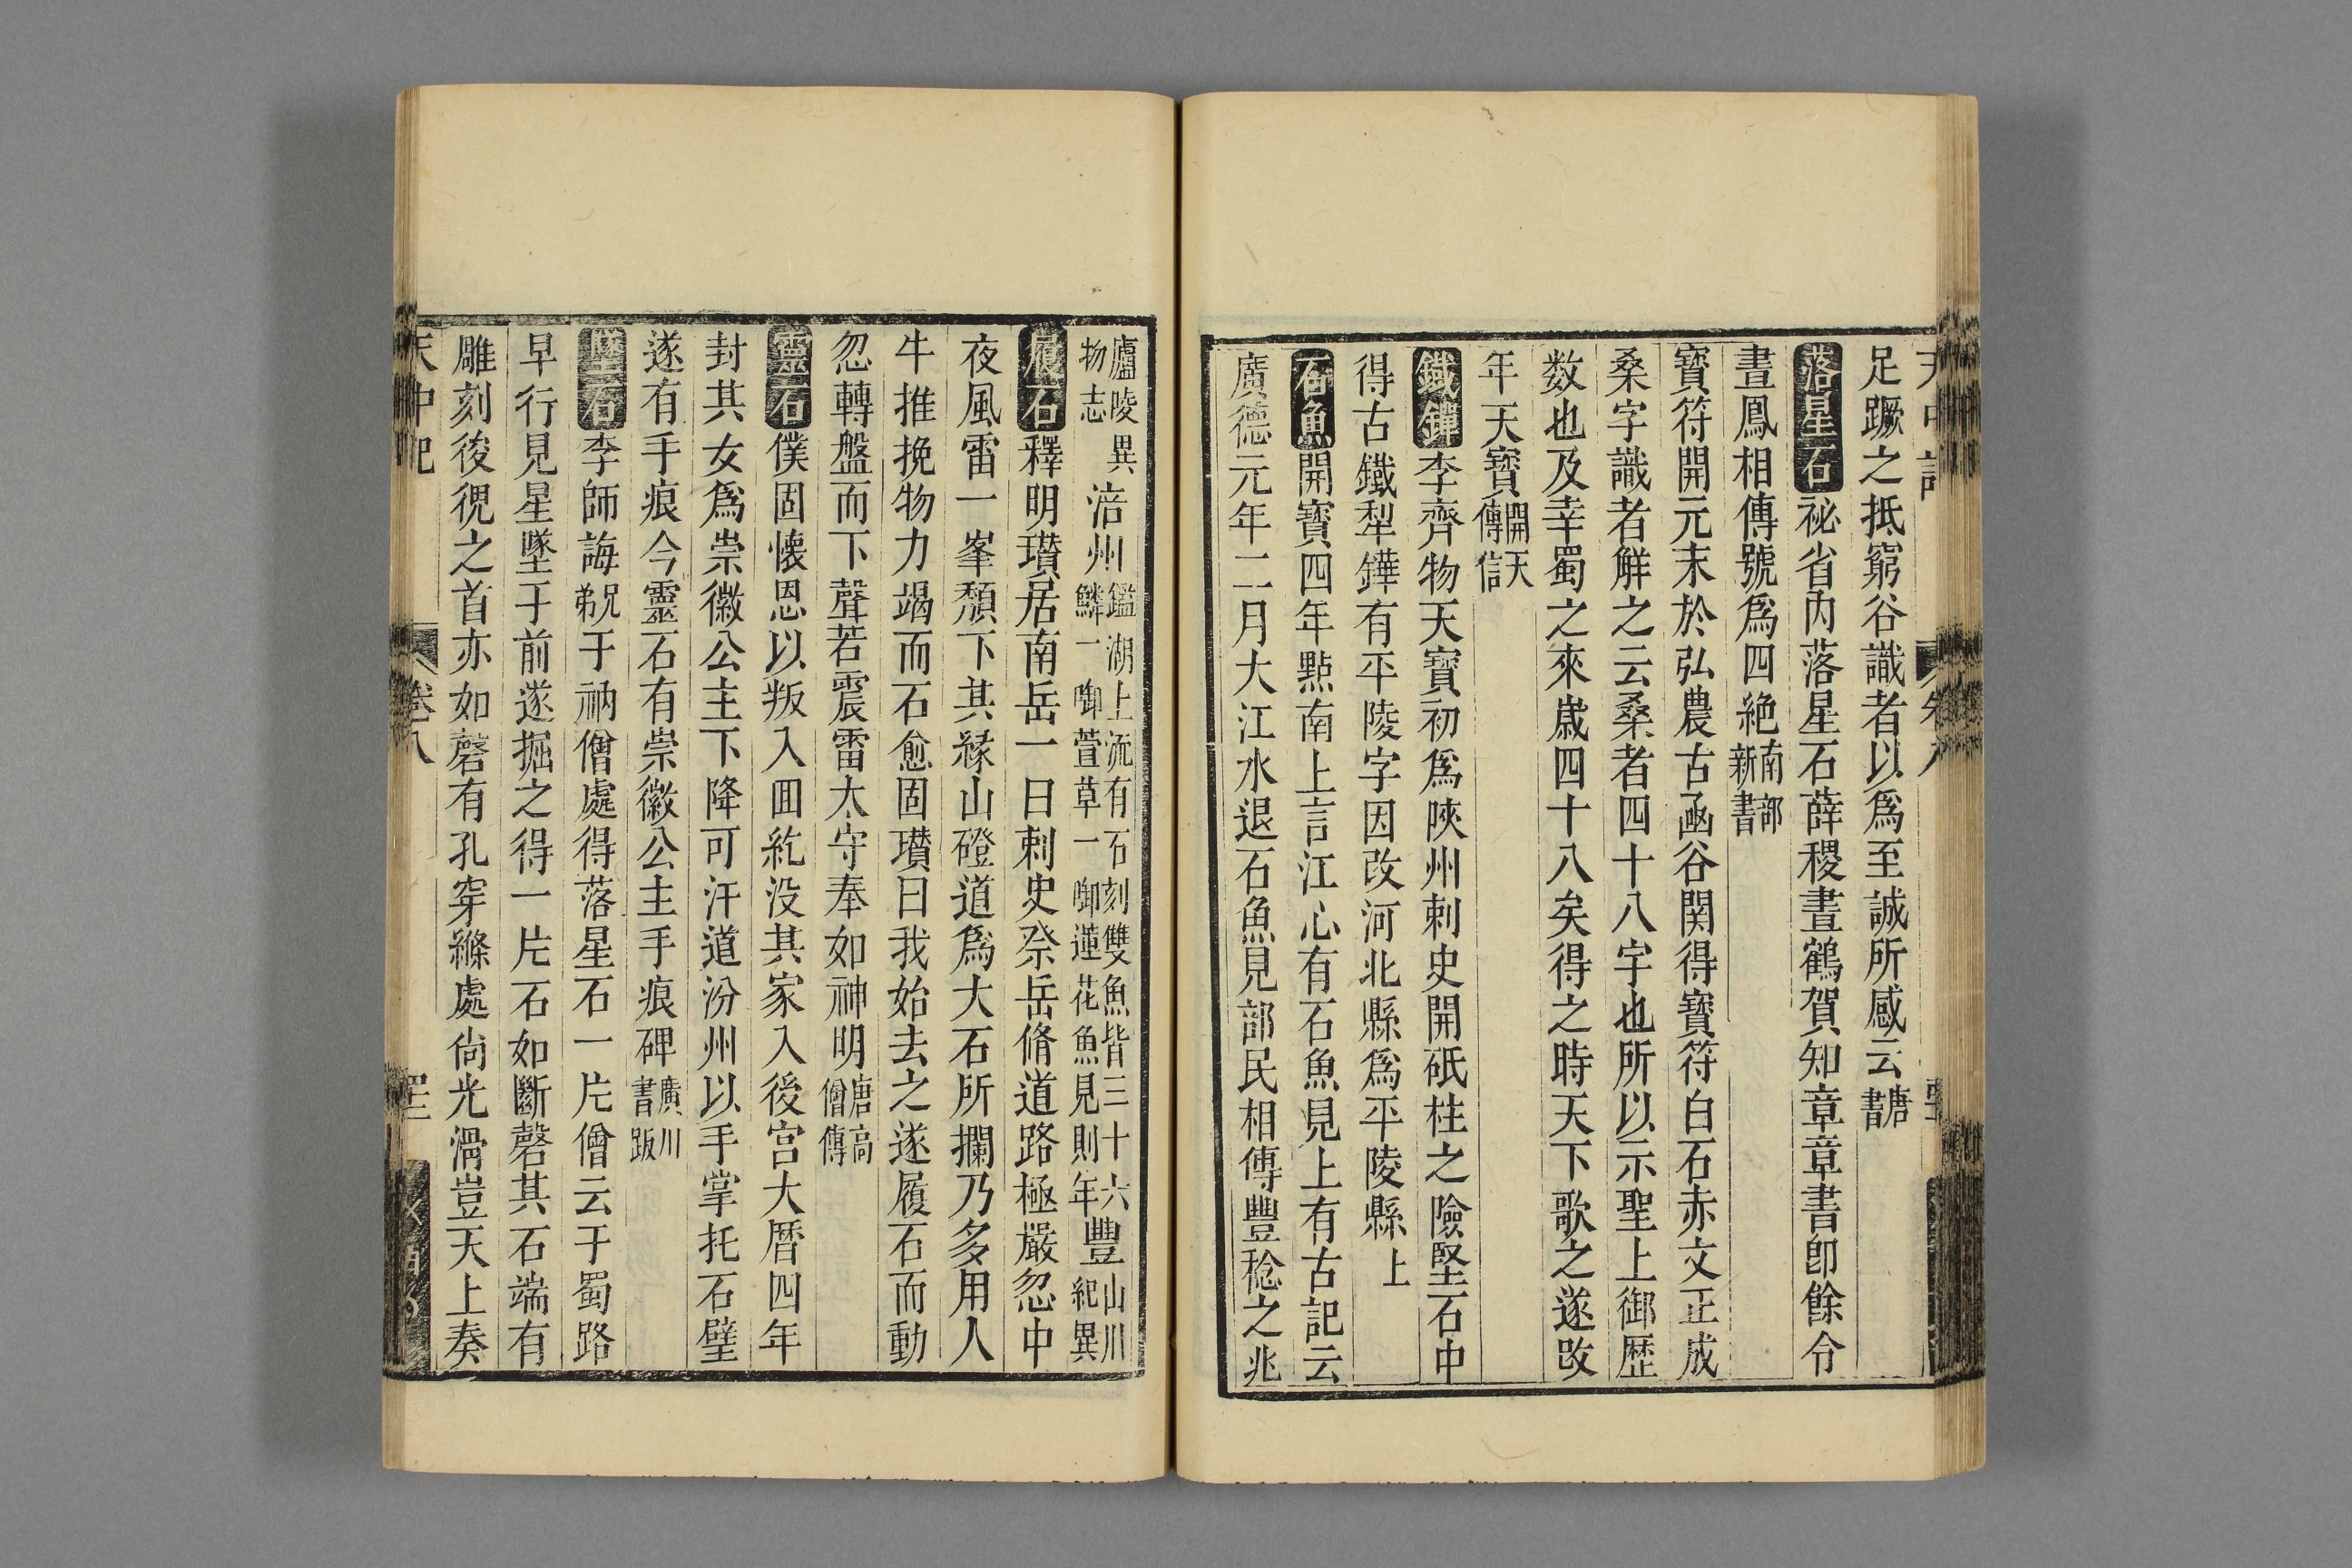 足蹶之抵窮谷識者以爲至誠所感云唐書
落星石祕省内落星石薛稷畫鶴賀知章章書郎餘令
畫鳳相傳號爲四絶南部新書
寶符開元末於弘農古凾谷関得寶符白石赤文正成
桑字識者觧之云桑者四十八字也所以示聖上御歴
数也及幸蜀之來嵗四十八矣得之時天下歌之遂攺
年天寳開天傳信
鐵鏵李齊物天寳初爲陜州刺史開砥柱之險堅石中
得古鐵犁鏵有平陵字因改河北縣爲平陵縣上
石魚開寳四年黙南上言江心有石魚見上有古記云
廣德元年二月大江水退石魚見部民相傳豐稔之兆
廬陵異物志 涪州鑑湖上流有石刻雙魚皆三十六鱗一啣萱草一啣蓮花魚見則年豐山川紀異
履石釋明瓚居南岳一日刺史祭岳脩道路極嚴忽中
夜風雷一峯頽下其緑山磴道爲大石所攔乃多用人
牛推挽物力竭而石愈固瓚曰我始去之遂履石而動
忽轉盤而下聲若震雷太守奉如神明唐高僧傳
靈石僕固懐恩以叛入囬紇没其家入後宫大曆四年
封其女爲崇徽公主下降可汗道汾州以手掌托石壁
遂有手痕今靈石有崇徽公主手痕碑廣川書跋
墜石李師誨兄弟于衲僧處得落星石一片僧云于蜀路
早行見星墜于前遂掘之得一片石如斷磬其石端有
雕刻後猊之首亦如磬有孔穿絛處尚光滑豈天上奏
天中記
卷八